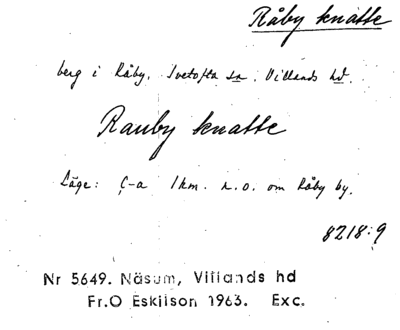 Råby knatte
berg i Råby. Ivetofta sn. Villands hd.
Rauby knatte
Läge: C-a 1 km. n.o. om Råby by.
8218:9
Nr 5649. Näsum, Villands hd
Fr.O Eskilson 1963. Exc.